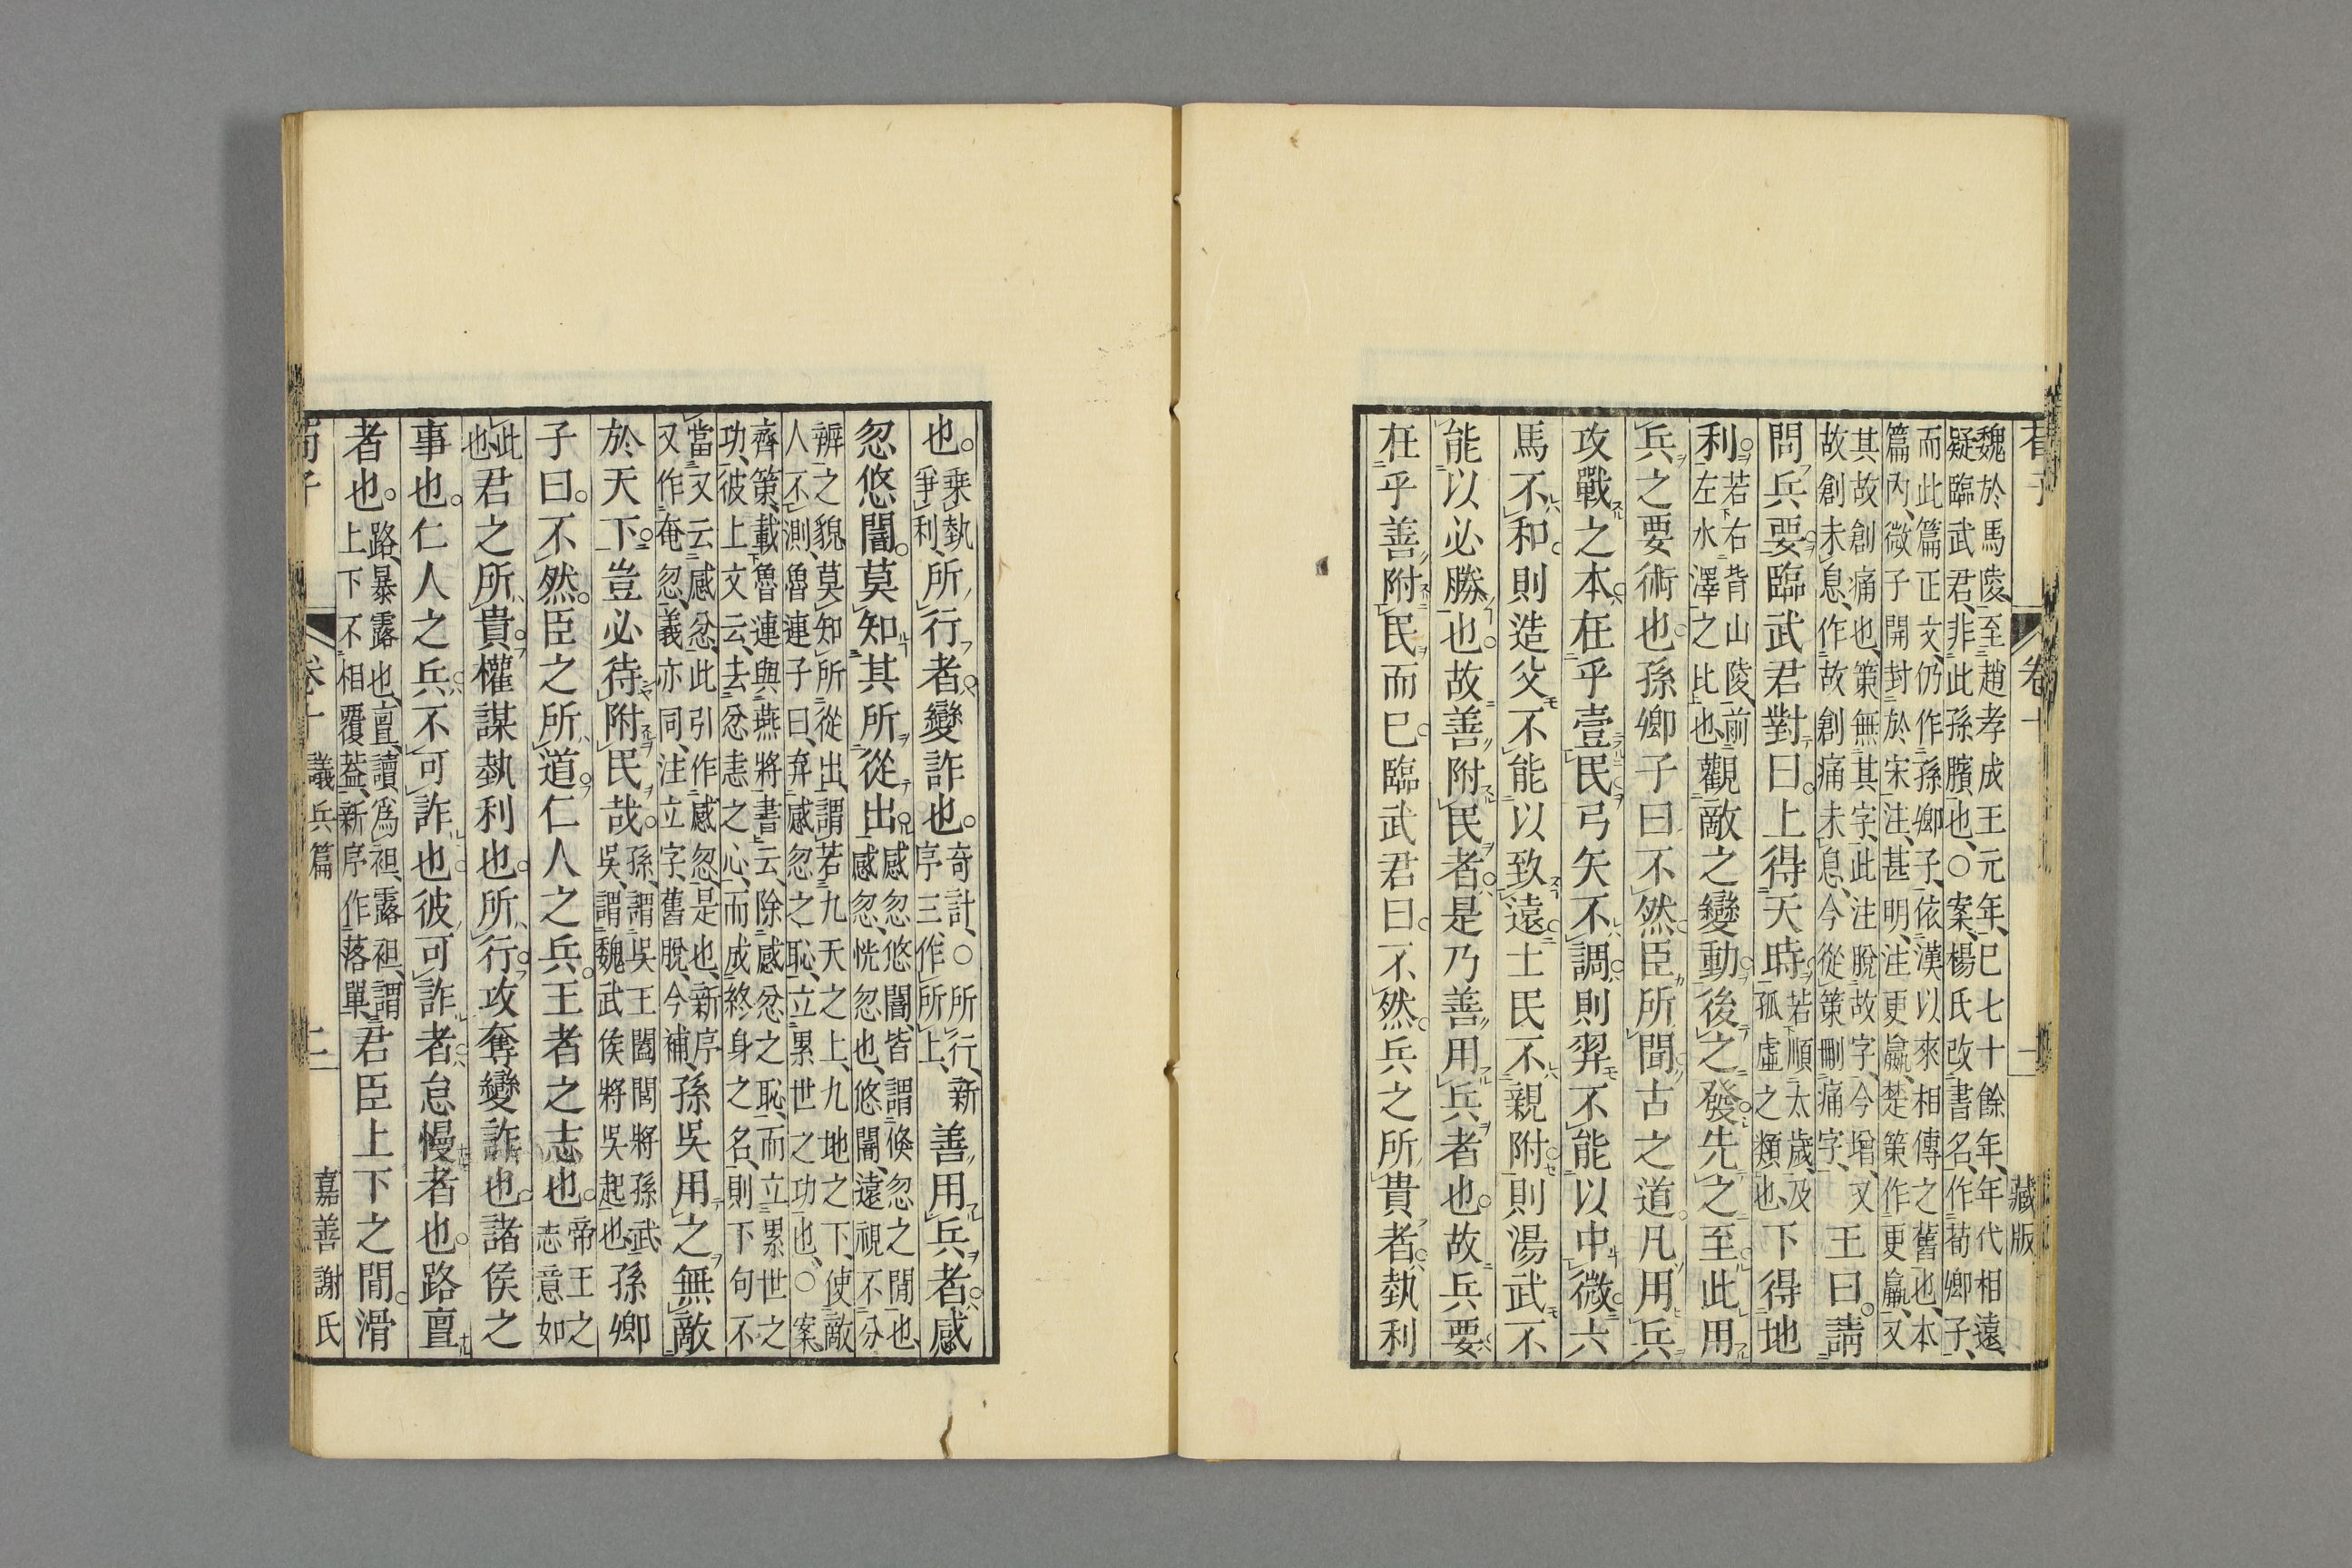 魏於馬陵、至趙孝成王元年、已七十餘年、年代相遠、
疑臨武君、非此孫臏也、○案、楊氏改書名、作荀卿子、
而此篇正文、仍作孫卿子、依漢以來相傳之舊也、本
篇內、微子開封於宋注、甚明、注更嬴、楚策作更羸、又
其故創痛也、策無其字、此注脫故字、今增、又
故創未息、作故創痛未息、今從策刪痛字、
王曰。請
問兵要。臨武君對曰。上得天時。
若順太歲、及
孤虛之類也、
下得地
利。
若右背山陵、前
左水澤之比也、
觀敵之變動。後之發。先之至。此用
兵之要術也。孫卿子曰。不然。臣所聞古之道。凡用兵
攻戰之本。在乎壹民。弓矢不調。則羿不能以中微。六
馬不和。則造父不能以致遠。士民不親附。則湯武不
能以必勝也。故善附民者。是乃善用兵者也。故兵要
在乎善附民而已。臨武君曰。不然。兵之所貴者。埶利
也。
乘埶
爭利、
所行者。變詐也。
奇計、○所行、新
序三、作所上、
善用兵者。感
忽悠闇。莫知其所從出。
感忽悠闇、皆謂倏忽之閒也、
感忽、恍忽也、悠闇、遠視不分
辨之貌、莫知所從出、謂若九天之上、九地之下、使敵
人不測、魯連子曰、弃感忽之恥、立累世之功也、○案、
齊策、載魯連與燕將書云、除感忿之恥、而立累世之
功、彼上文云、去忿恚之心、而成終身之名、則下句不
當又云感忿、此引作感忽、是也、新序
又作奄忽、義亦同、注立字、舊脫、今補、
孫吳用之。無敵
於天下。豈必待附民哉。
孫、謂吳王闔閭將孫武、
吳、謂魏武侯將吳起也、
孫卿
子曰。不然。臣之所道。仁人之兵。王者之志也。
帝王之
志意如
此
也
君之所貴。權謀埶利也。所行。攻奪變詐也。諸侯之
事也。仁人之兵。不可詐也。彼可詐者。怠慢者也。路亶
者也。
路、暴露也、亶、讀爲袒、露袒、謂
上下不相覆蓋、新序作落單、
君臣上下之閒。滑
荀子
卷十
議兵篇
二
嘉善謝氏
卷十
藏版